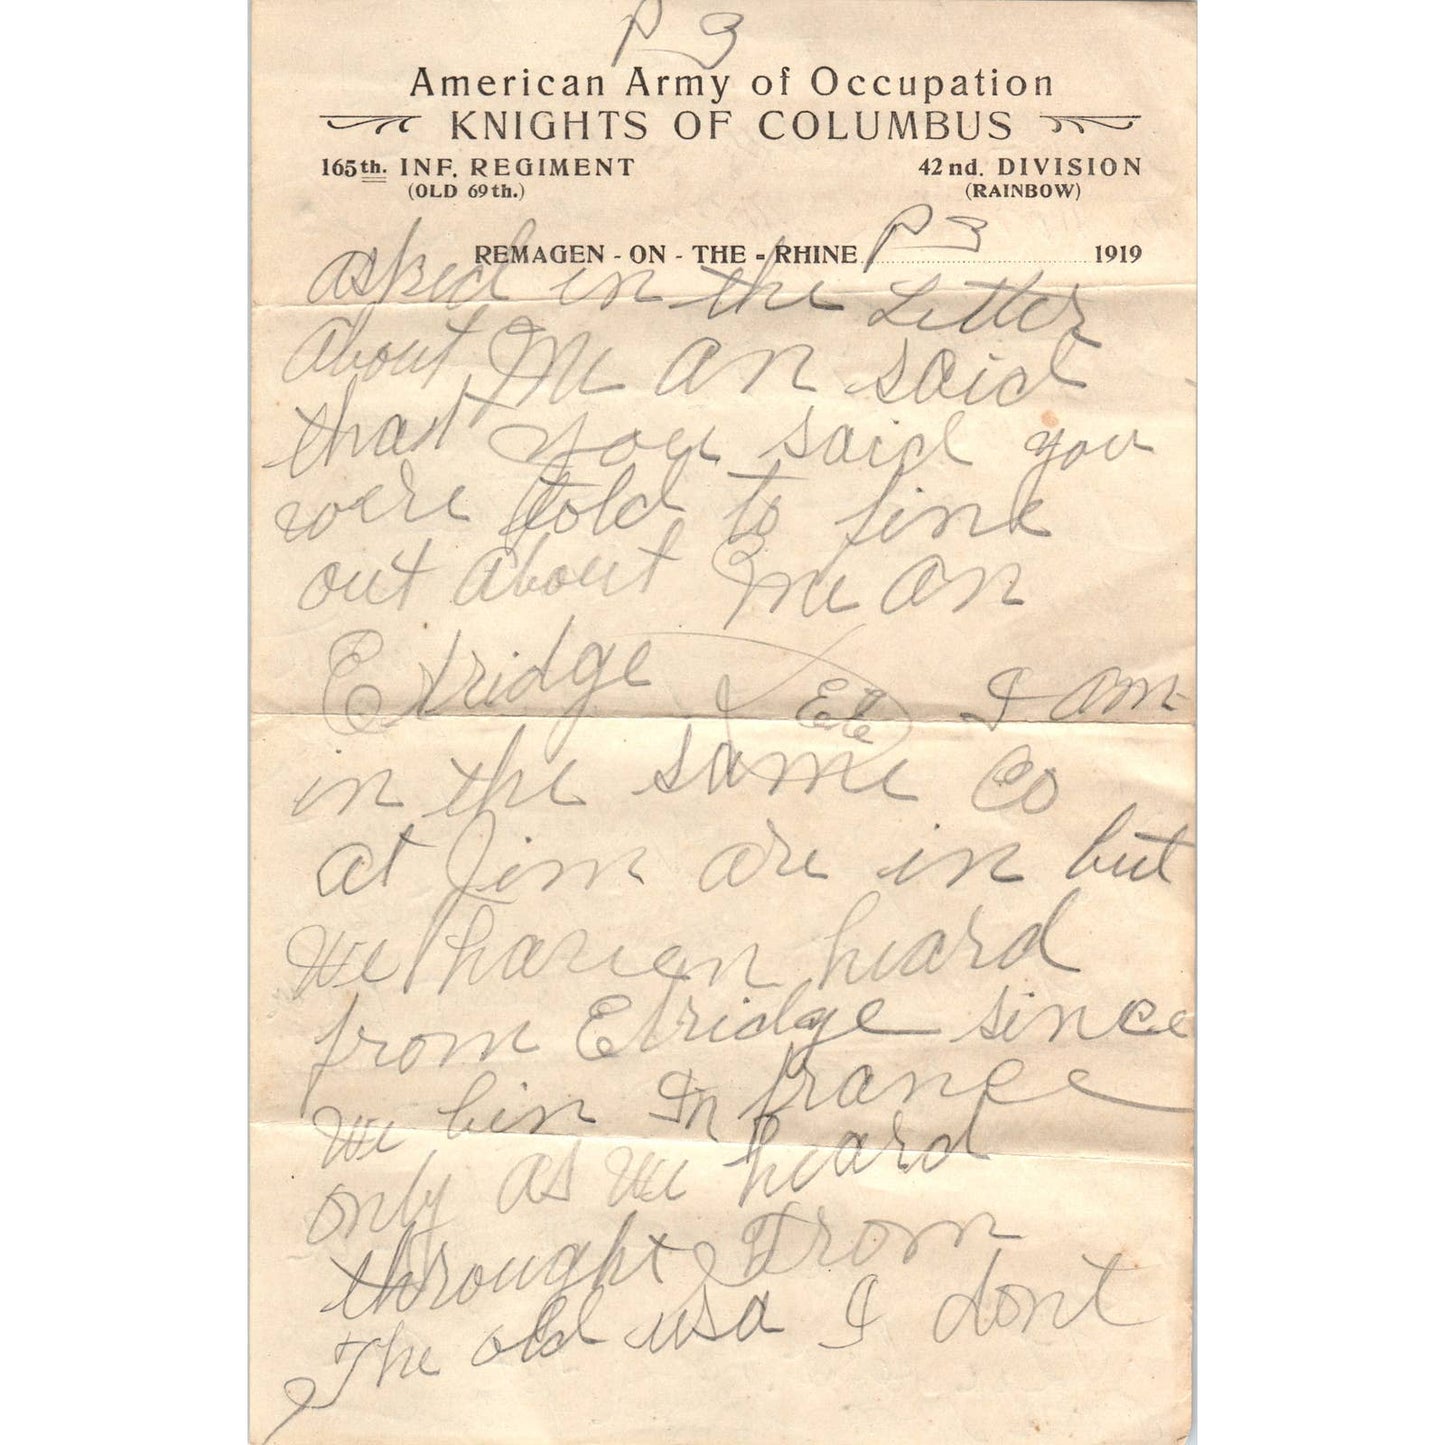 P 3
American Army of Occupation
KNIGHTS OF COLUMBUS
165th. INF. REGIMENT 42nd. DIVISION
(OLD 69th.) (RAINBOW)
REMAGEN - ON - THE - RHINE P 3 1919
asked in the Letter
about Me an said
that you said you
were told to fine
out about Me an
Etridge Ete I am
in the same Co
at Jim are in but
We haven heard
from Etridge since
We bin In france
only as We heard
throught From
The old usa I dont